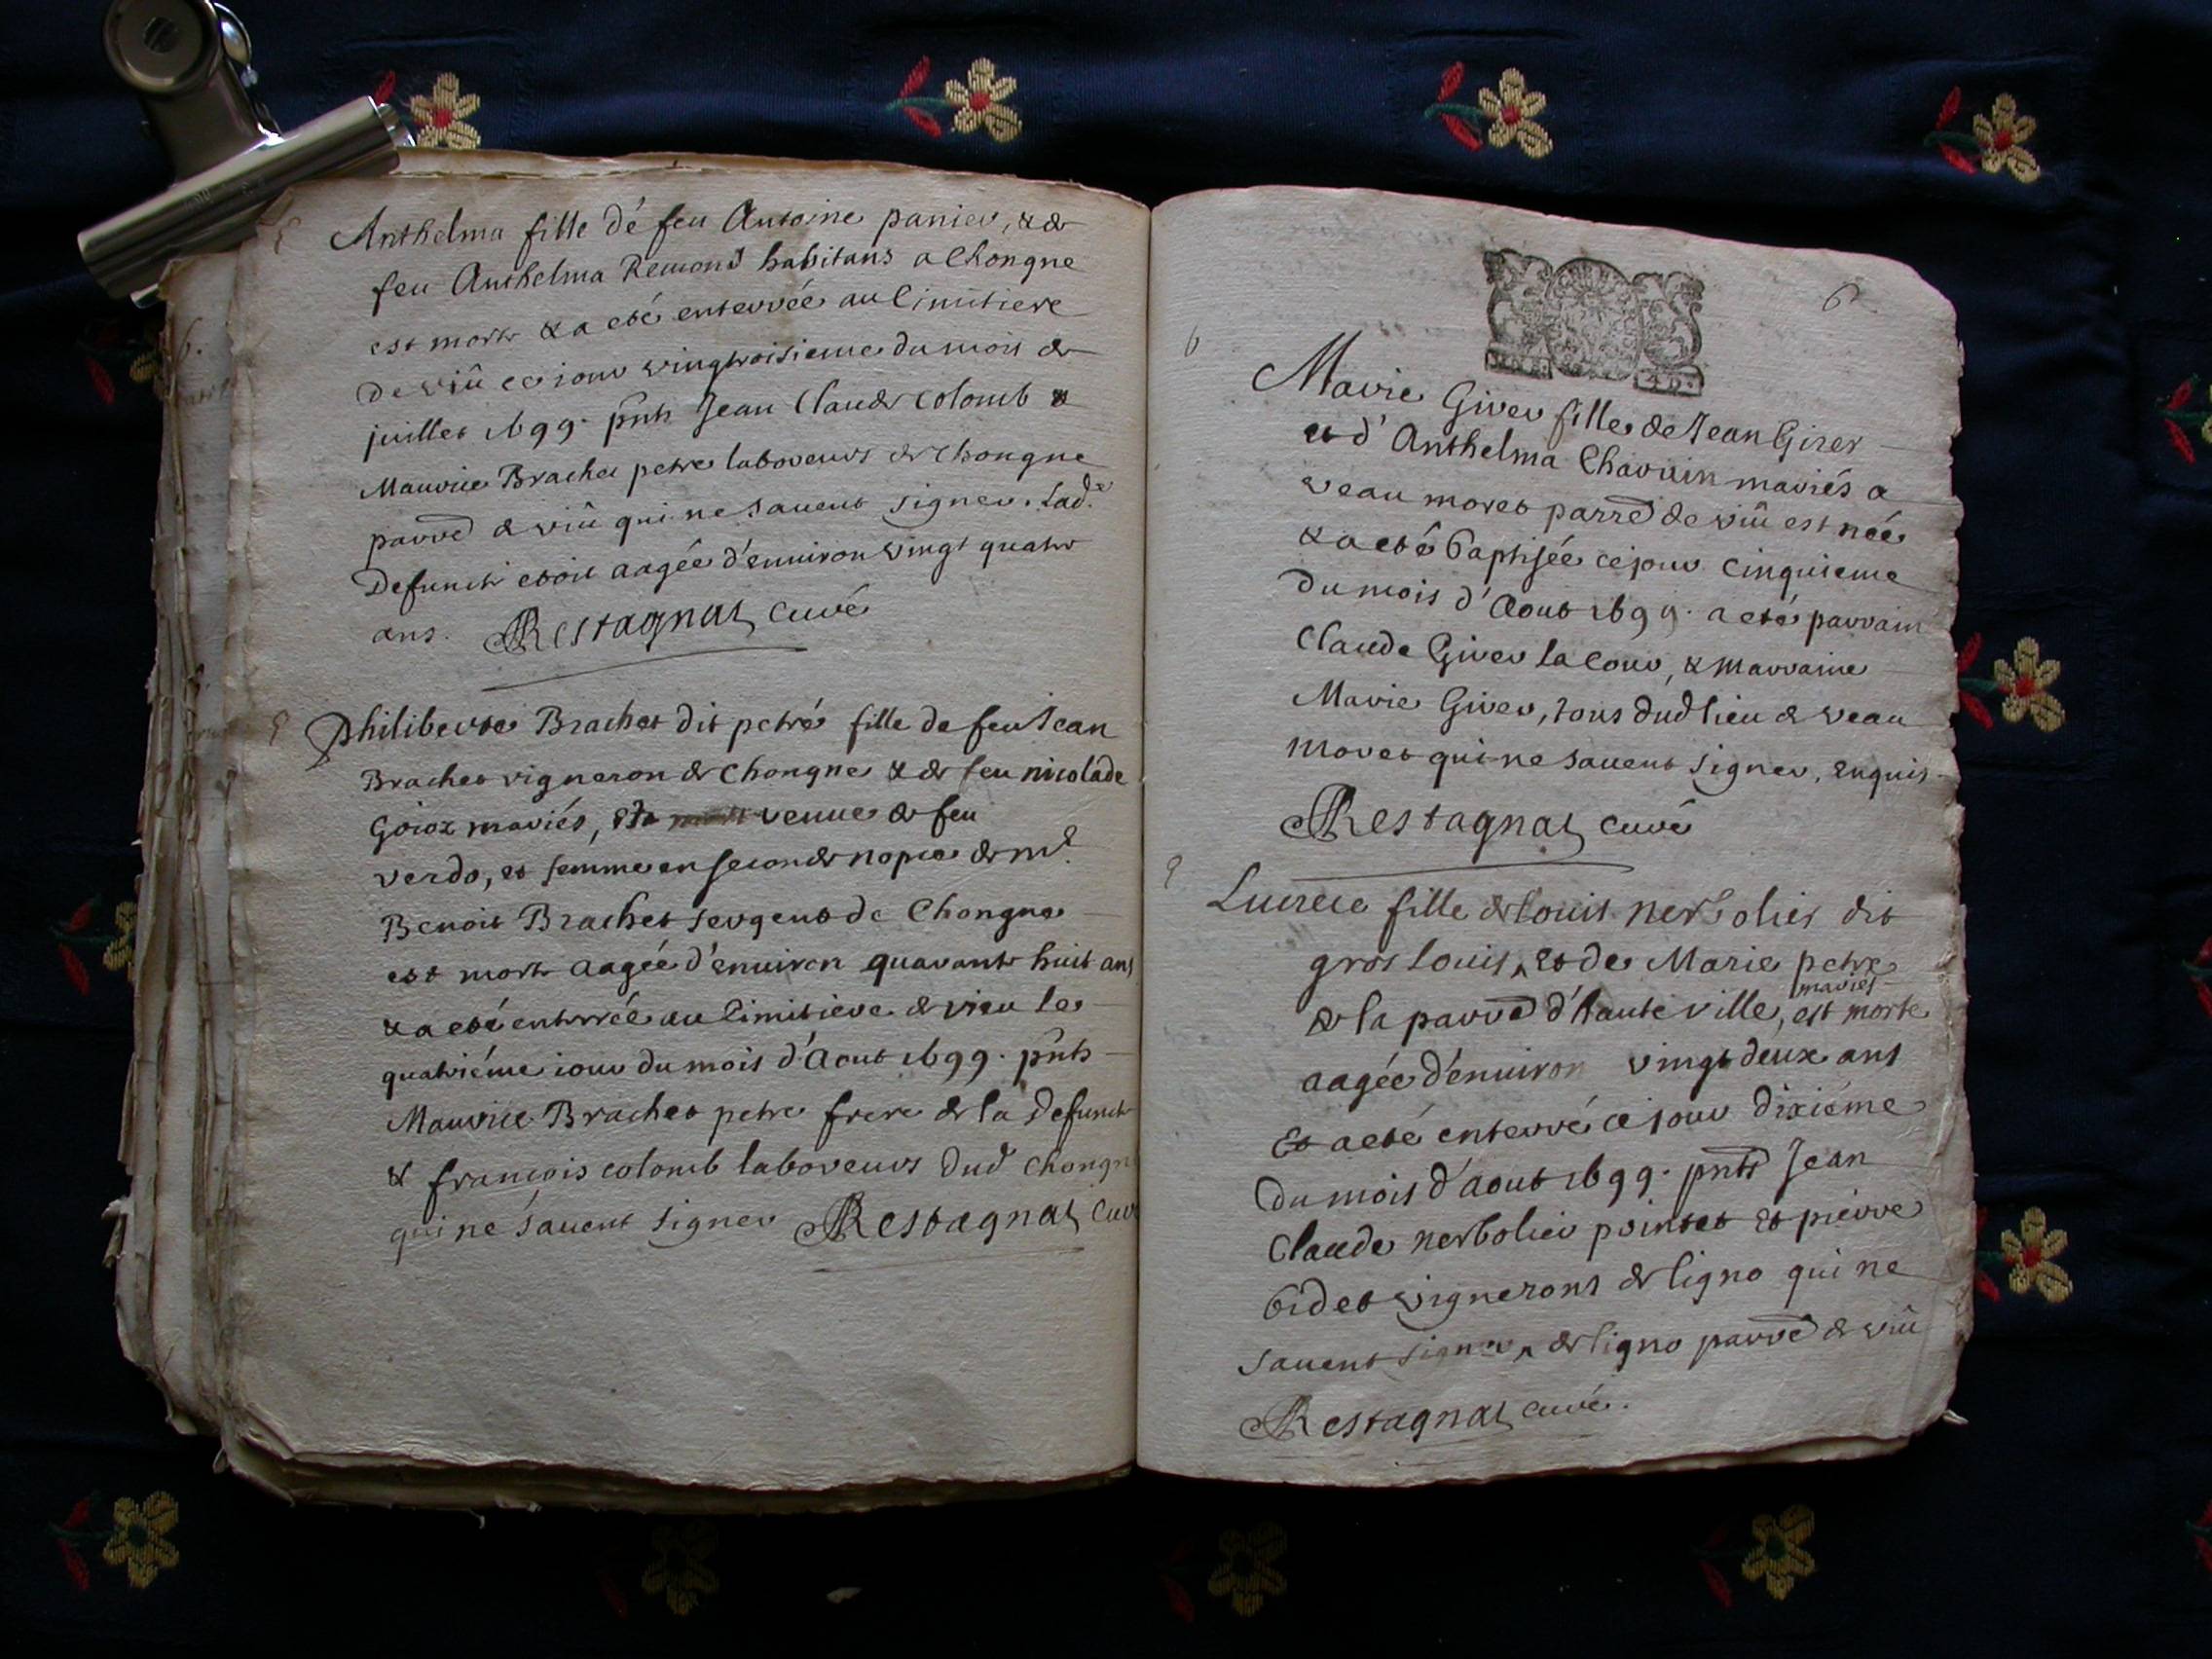 Anthelma fille de feu Antoine panier, & de
feu Anthelma Remond habitans a Chongne
est morte & a eté enterrée au Cimitiere
de viû ce jour vingtroisieme du mois de
juillet 1699. pnts Jean Claude Colomb &
Maurice Brachet petre laboreurs de Chongne
parre de viû qui ne sauent signer. Lad.e
Defuncte etoit aagée d'enuiron vingt quatre
ans. Restagnat curé
Philiberte Brachet dit petré fille de feu Jean
Brachet vigneron de Chongne & de feu nicolade
Goioz mariés, veuue de feu
verdo, et femme en seconde nopce de me
Benoit Brachet sergent de Chongne
est morte aagée d'enuiron quarante huit ans
& a eté enterrée au Cimitiere de vieu le
quatriéme iour du mois d'Aout 1699. pnts
Maurice Brachet petre frere de la defuncte
& françois colomb laboreurs dud Chongne
qui ne sauent signer Restagnat Curé
6
6
Marie Girer fille de Jean Girer
et d'Anthelma Chavuin mariés a
veau moret parre de viû est née
& a eté baptisée ce jour cinquieme
du mois d'Aout 1699. a eté parrain
Claude Girer la Cour, & marraine
Marie Girer, tous dud lieu de veau
moret qui ne sauent signer, enquis
Restagnat curé
Lucrece fille de louis nerbolier dit
gros louis, et de Marie petre
mariés
de la parre d'haute ville, est morte
aagée d'enuiron vingt deux ans
Et a eté enterré ce jour dixiéme
du mois d'aout 1699. pnts Jean
Claude nerbolier pointet et pierre
bidet vignerons de ligno qui ne
sauent signer de ligno parre de viû
Restagnat curé.